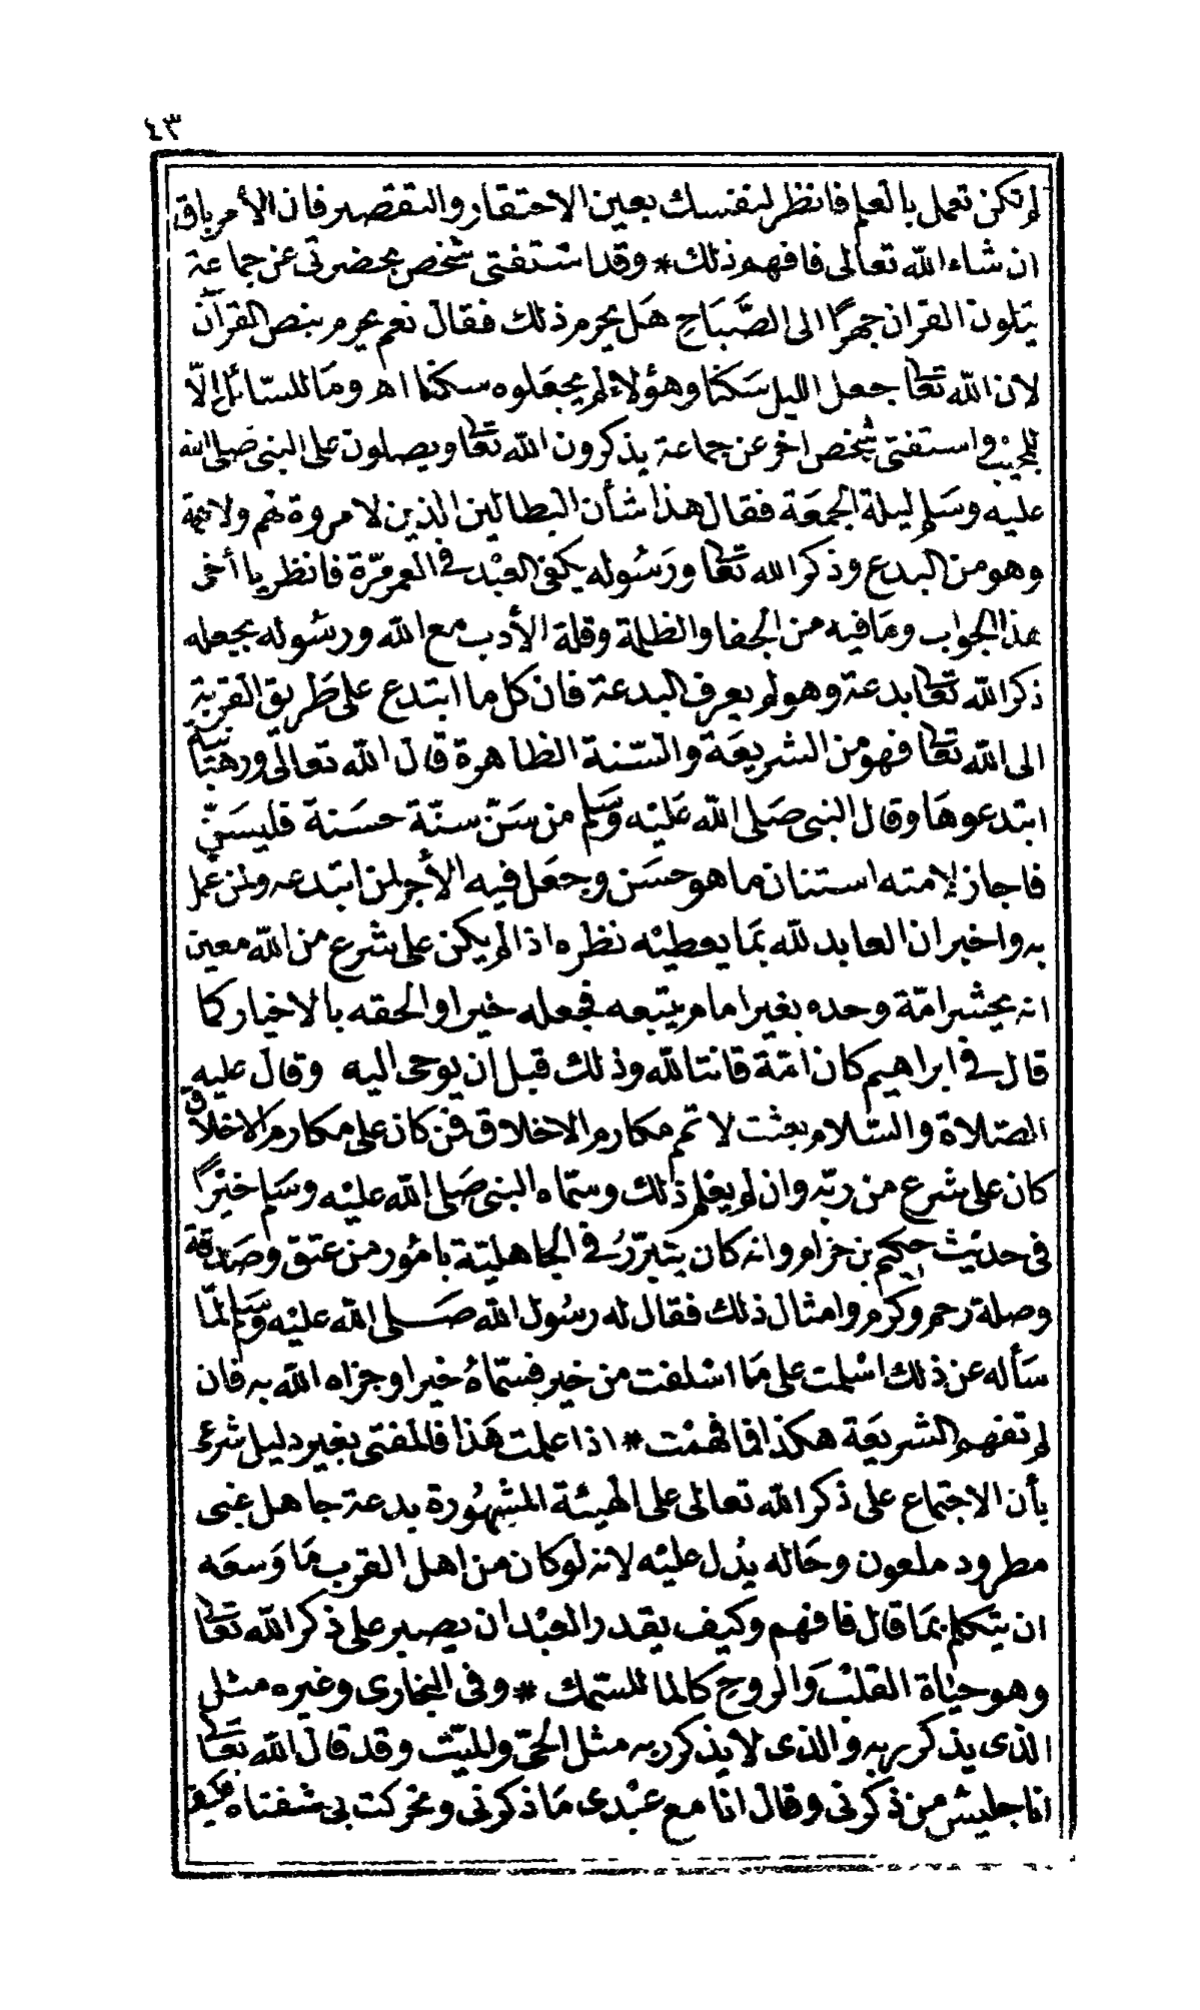 ٤٣
لم تكن تعمل بالعلم فانظر لنفسك بعين الاحتقار والتقصير فان الأمر باق
ان شاء الله تعالى فافهم ذلك * وقد استفتى شخص بحضرتى عن جماعة
يتلون القران جهرًا الى الصَّبَاحِ هَل يحرم ذلك فقال نعم يحرم بنص القرآن
لان الله تعالى جعل الليل سَكنا وهؤلاء لم يجعَلوه سكنا اه ومَا للسائل إلّا
المجيب واستفتى شخص اخر عن جماعة يذكرون الله تعالى ويصلون على النبى صَلى الله
عليه وسَلم ليلة الجمعَة فقال هذا شأن البطالين الذين لا مروة لهم ولا همة
وهو من البدع وذكر الله تعالى ورَسُوله يكفى العبْد فى العمر مرّة فانظر يا أخى
هذا الجواب ومَا فيه من الجفا والظلمة وقلة الأدب مع الله ورسُوله بجعله
ذكر الله تعالى بدعة وهو لم يعرف البدعة فان كل ما ابتدع على طَريق القربة
الى الله تعالى فهو من الشريعَة والسّنة الظاهرة قال الله تعالى ورهبَانية
ابتدعوهَا وقال النبى صَلى الله عَليْه وَسَلم من سَنّ سنّة حسَنة فليسَنّ
فاجاز لامته استنان ما هو حسَن وجعَل فيه الأجر لمن ابتدعه ولمن عمل
به واخبر ان العابد لله بمَا يعطيْه نظره اذا لم يكن على شرع من الله معين
انه يحشر امّة وحده بغير امام يتبعه فجعله خيرا والحقه بالاخيار كما
قال فى ابراهيم كان امّة قانتا لله وذلك قبل ان يوحى اليه وقال عليه
الصّلاة والسّلام بعثت لاتمم مكارم الاخلاق فمن كان على مكارم الاخلاق
كان على شرع من ربّه وان لم يعْلم ذلك وسمّاه النبى صَلى الله عليْه وسَلم خيْرًا
فى حديْث حكيم بن حزام وانه كان يتبرّرُ فى الجاهليّة بامُور من عتق وصَدقة
وصلة رحم وكرم وامثال ذلك فقال له رسُول الله صَلى الله عليْه وَسَلم لمّا
سَأله عن ذلك اسْلمت على مَا اسْلفت من خير فسمّاهُ خيرا وجزاه الله به فان
لم تفهم الشريعَة هكذا فما فهمْت * اذا علمت هَذا فالمفتى بغير دليل شرعى
بأن الاجتماع على ذكر الله تعالى على الهيئة المشهُورة بدعة جاهل غبى
مطرود ملعون وحَاله يدُل عليْه لانه لو كان من اهل القرب مَا وَسعَه
ان يتكلم بمَا قال فافهم وكيف يقدر العبْد ان يصبر على ذكر الله تعالى
وهو حيَاة القلْب وَالروح كالما للسّمك * وفى البخارى وغيره مثل
الذى يذكر ربه والذى لا يذكر ربه مثل الحىّ والميّت وقد قال الله تعالى
انا جليْس من ذكرنى وقال انا مع عبْدى مَا ذكرنى وتحركت بى شفتاه فكيف